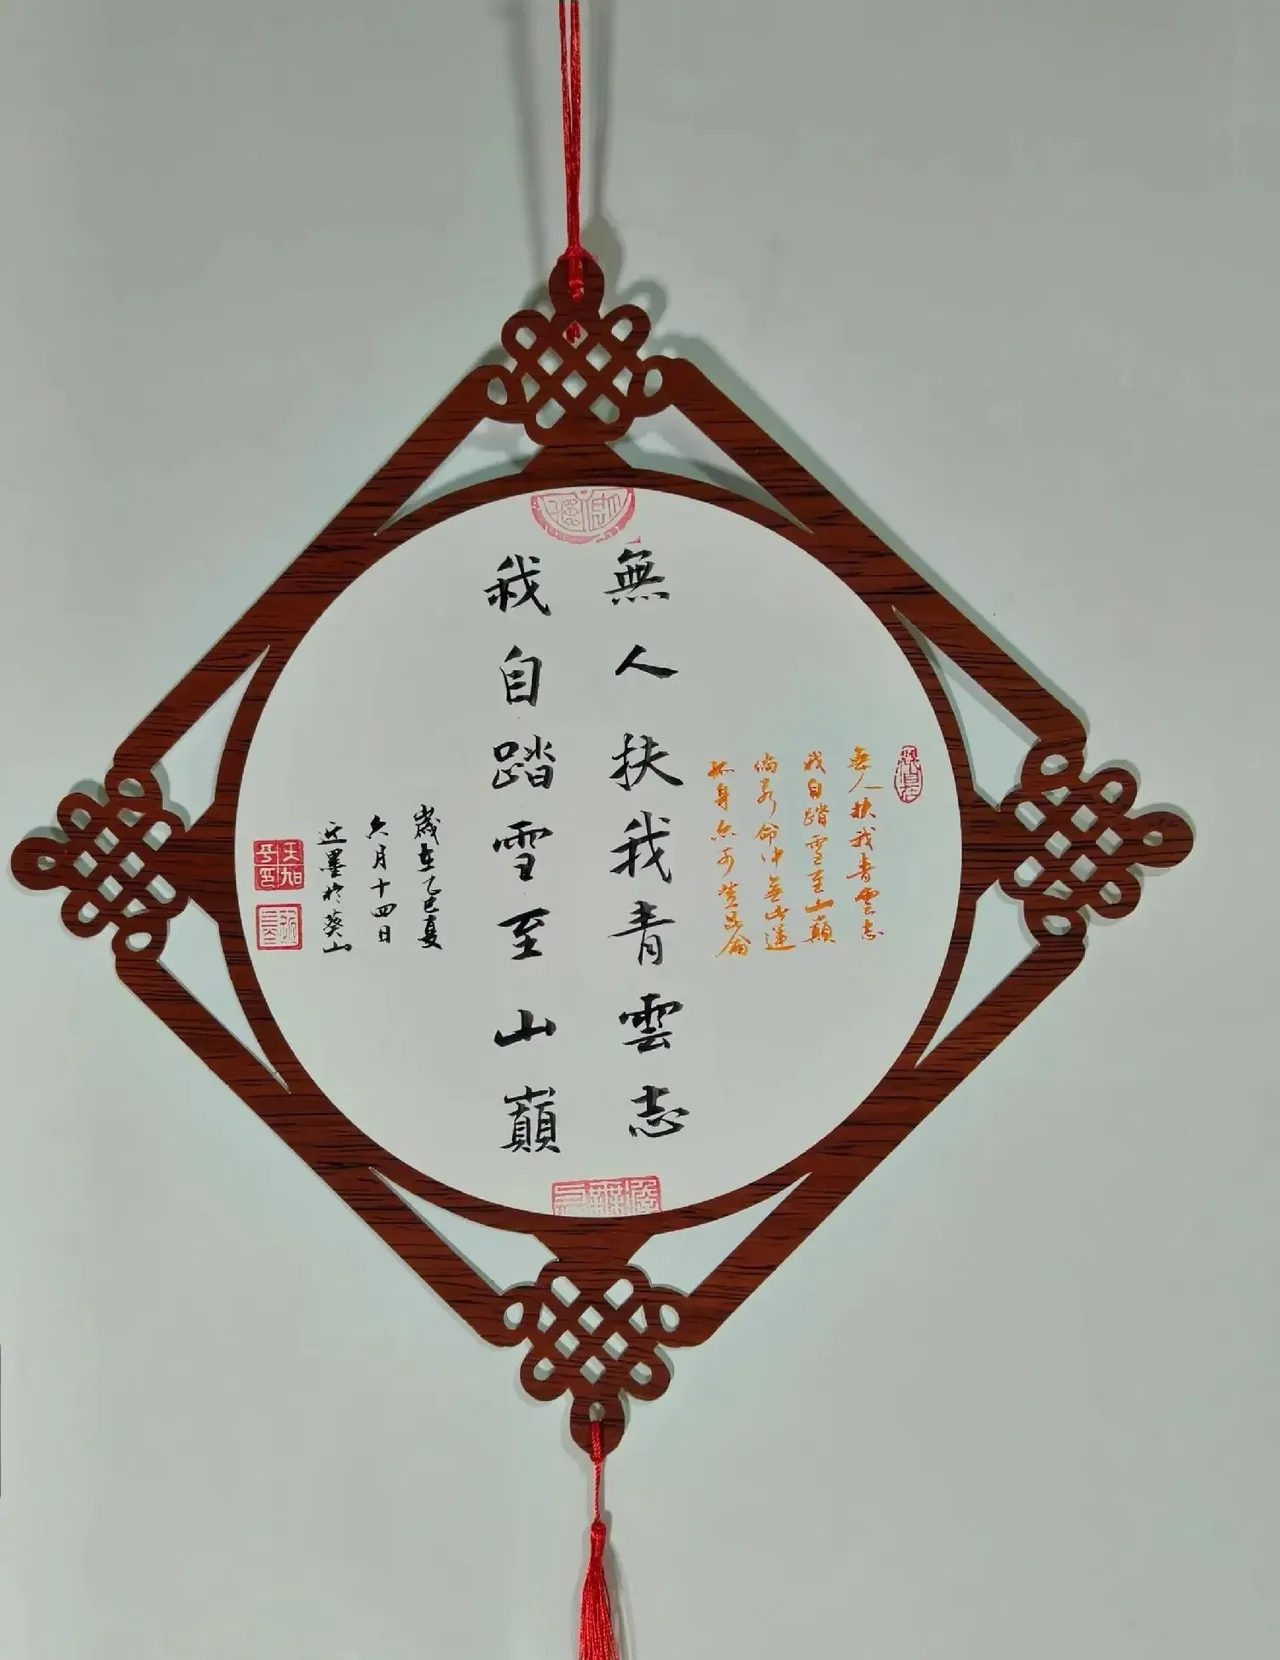 無人扶我青雲志
我自踏雪至山巔
倘若命中無此運
孤身亦可登昆侖
無人扶我青雲志
我自踏雪至山巔
歲在乙巳夏
六月十四日
近墨於葵山